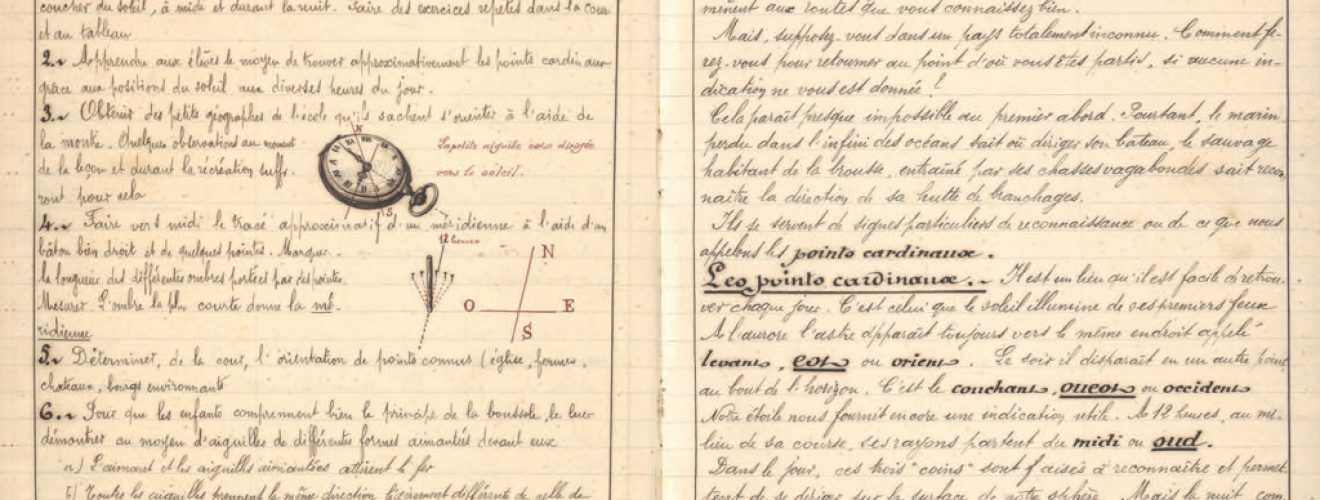 coucher du soleil, à midi et durant la nuit. Faire des exercices répétés dans la cour
et au tableau
2.~ Apprendre aux élèves le moyen de trouver approximativement les points cardinaux
grâce aux positions du soleil aux diverses heures du jour.
3.~ Obtenir des petits géographes de l'école qu'ils sachent s'orienter à l'aide de
la montre. Quelques observations au moment
de la leçon et durant la récréation suffi-
ront pour cela
N
S
La petite aiguille dirigée
vers le soleil.
4.~ Faire vers midi le tracé approximatif d'un méridienne à l'aide d'un
bâton bien droit et de quelques pointes. Marquer
la longueur des différentes ombres portées par des pointes.
Mesurer. L'ombre la plus courte donne la mé-
ridienne
12 heures
N
O E
S
5.~ Déterminer, de la cour, l'orientation de points connus (église, fermes,
chateaux, bourgs environnants
6.~ Pour que les enfants comprennent bien le principe de la boussole, le leur
démontrer au moyen d'aiguilles de différentes formes aimantées devant eux
a) L'aimant et les aiguilles aimantées attirent le fer
b) Toutes les aiguilles prennent la même direction légèrement différente de celle de
mènent aux routes que vous connaissez bien.
Mais, supposez-vous dans un pays totalement inconnu. Comment fe-
rez-vous pour retourner au point d'où vous êtes partis, si aucune in-
dication ne vous est donnée ?
Cela paraît presque impossible au premier abord. Pourtant, le marin
perdu dans l'infini des océans sait où diriger son bateau, le sauvage
habitant de la brousse, entraîné par ses chasses vagabondes sait recon-
naître la direction de sa hutte de branchages.
Ils se servent de signes particuliers de reconnaissance ou de ce que nous
appelons les points cardinaux.
Les points cardinaux.~ Il est un lieu qu'il est facile de retrou-
ver chaque jour. C'est celui que le soleil illumine de ses premiers feux
A l'aurore l'astre apparaît toujours vers le même endroit appelé
levant, est ou orient. Le soir il disparaît en un autre point
au bout de l'horizon. C'est le couchant, ouest ou occident
Notre étoile nous fournit encore une indication utile. A 12 heures, au mi-
lieu de sa course, ses rayons partent du midi ou sud.
Dans le jour, ces trois "coins" sont faisés à reconnaître et permet-
tent de se diriger sur la surface de notre sphère. Mais la nuit, com-